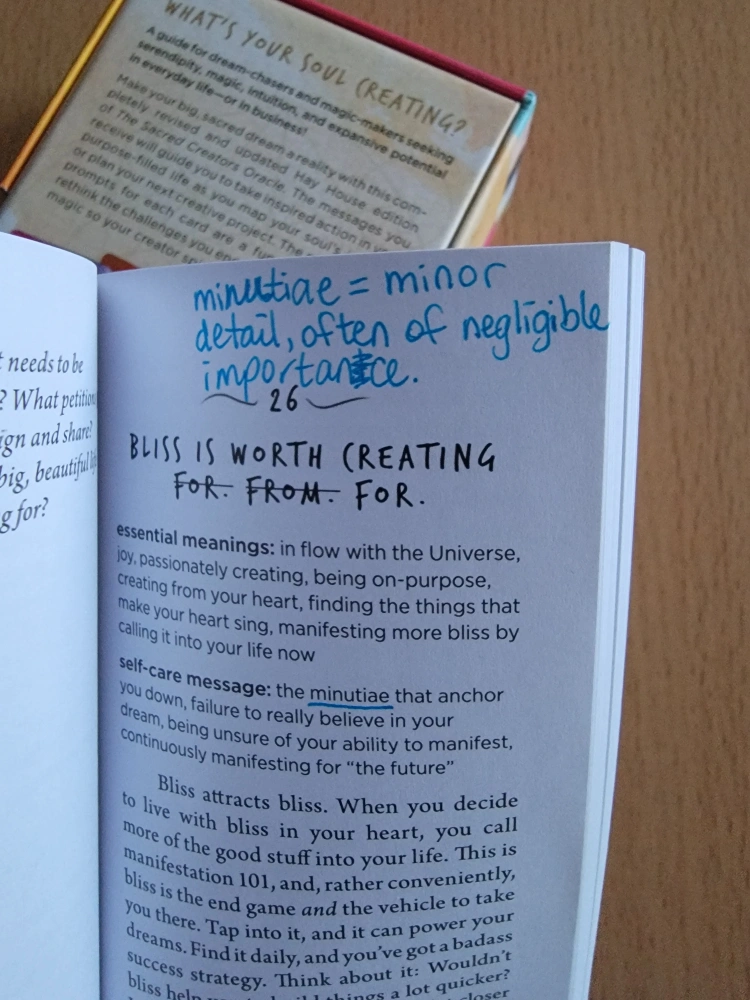 WHAT'S YOUR SOUL CREATING?
A guide for dream-chasers and magic-makers seeking
serendipity, magic, intuition, and expansive potential
in everyday life—or in business!
Make your big, sacred dream a reality with this com-
pletely revised and updated Hay House edition
of The Sacred Creators Oracle. The messages you
receive will guide you to take inspired action in
purpose-filled life as you map your soul's
or plan your next creative project. The
prompts for each card are a fun
rethink the challenges you
magic so your creator
needs to be
? What petition
ign and share?
big, beautiful
g for?
minutiae = minor
detail, often of negligible
importance.
26
BLISS IS WORTH CREATING
FOR. FROM. FOR.
essential meanings: in flow with the Universe,
joy, passionately creating, being on-purpose,
creating from your heart, finding the things that
make your heart sing, manifesting more bliss by
calling it into your life now
self-care message: the minutiae that anchor
you down, failure to really believe in your
dream, being unsure of your ability to manifest,
continuously manifesting for “the future”
Bliss attracts bliss. When you decide
to live with bliss in your heart, you call
more of the good stuff into your life. This is
manifestation 101, and, rather conveniently,
bliss is the end game and the vehicle to take
you there. Tap into it, and it can power your
dreams. Find it daily, and you've got a badass
success strategy. Think about it: Wouldn't
bliss help things a lot quicker?
closer